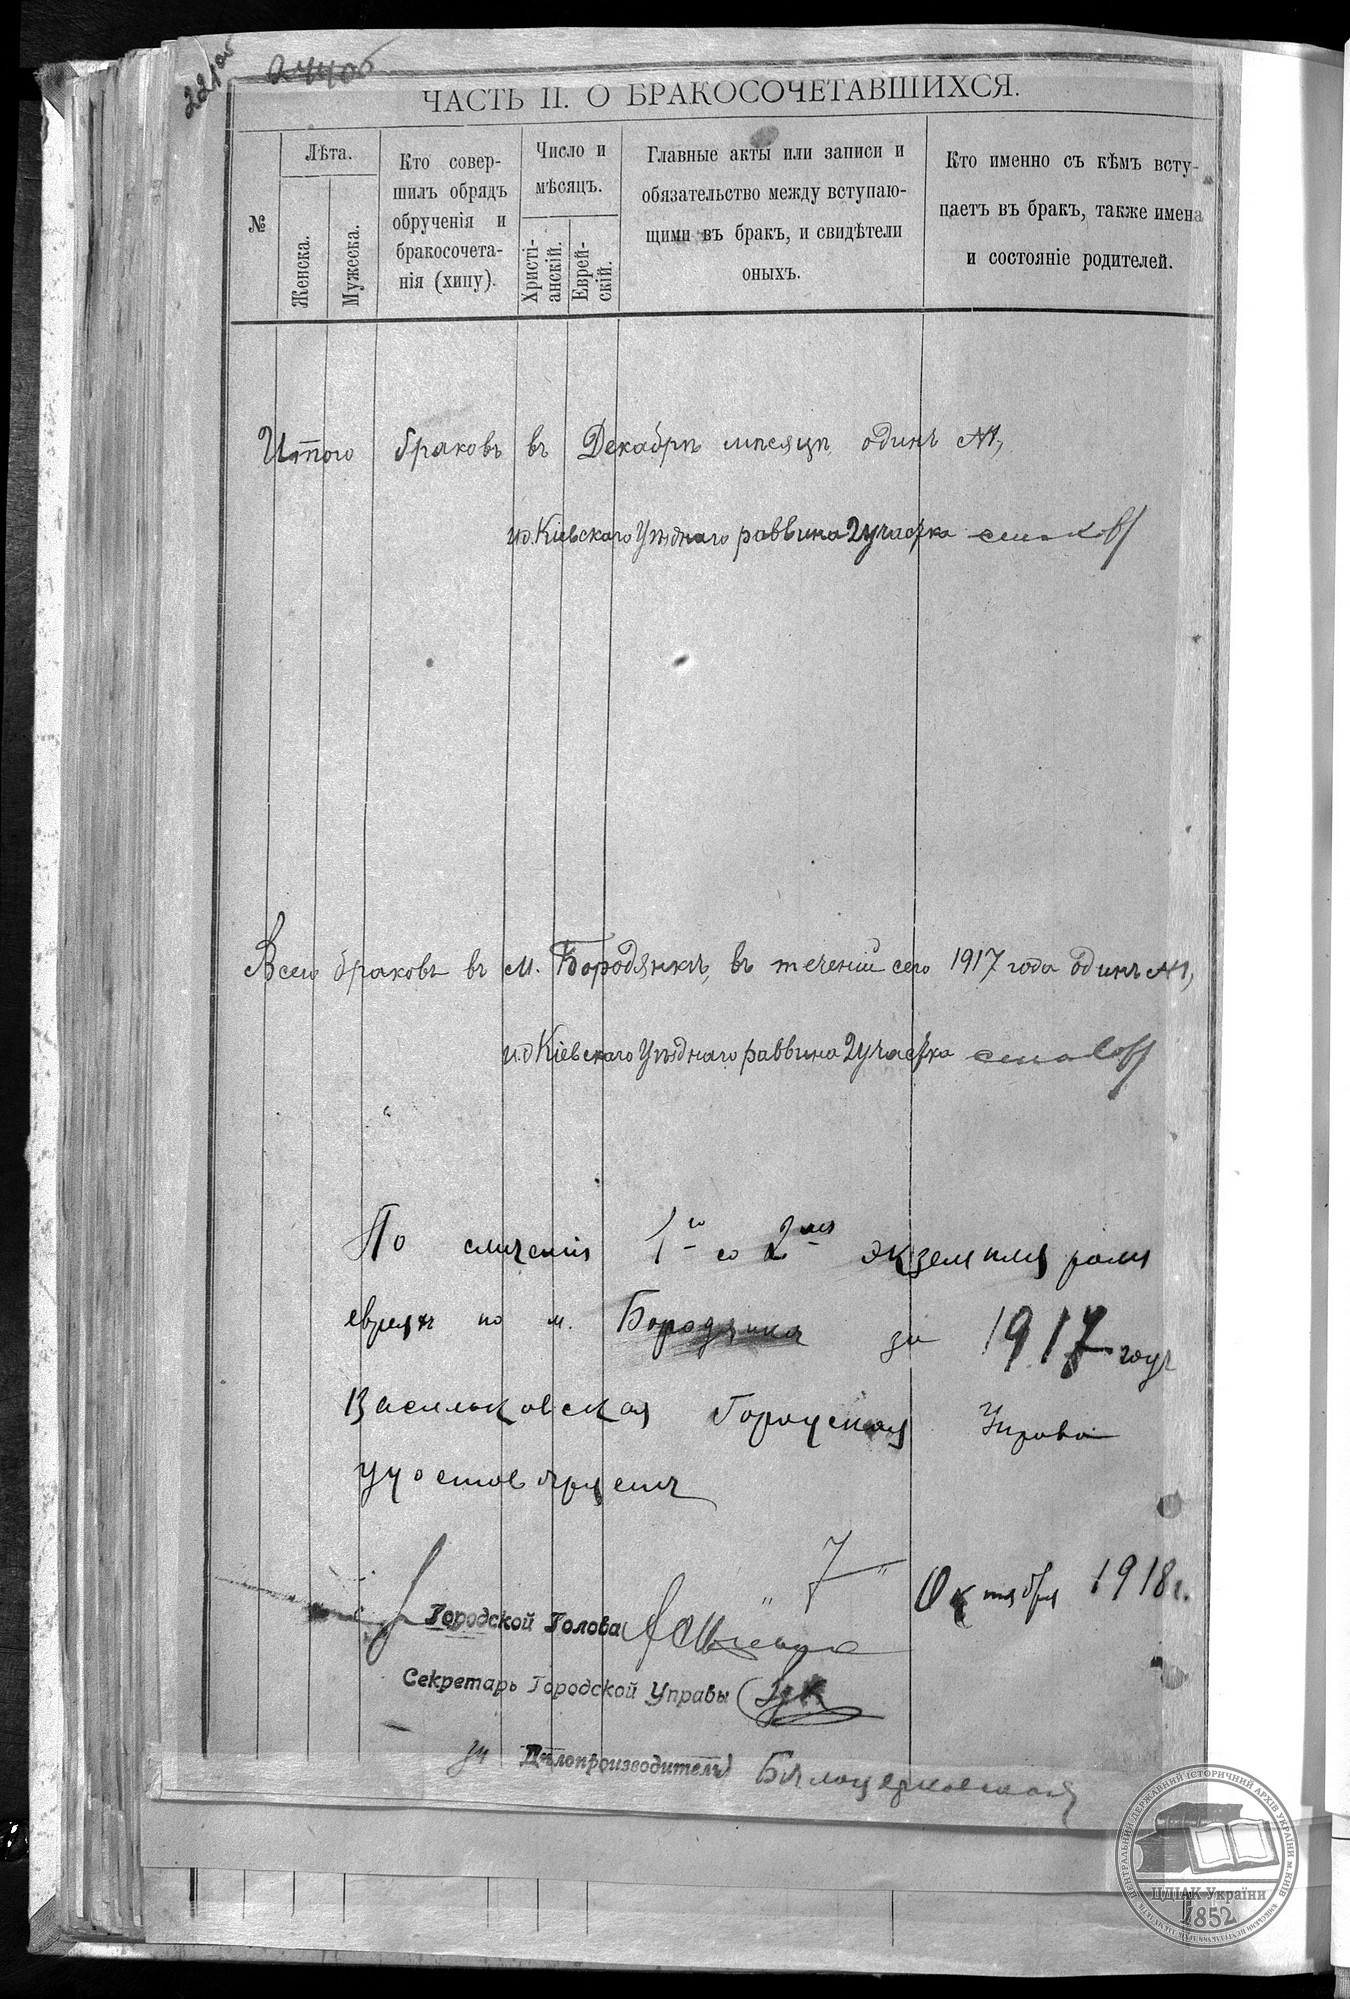 221 об
244 об
ЧАСТЬ II. О БРАКОСОЧЕТАВШИХСЯ.
№
Лѣта.
Женска.
Мужеска.
Кто совер-
шилъ обрядъ
обрученія и
бракосочета-
нія (хипу).
Число и
мѣсяцъ.
Христі-
анскій.
Еврей-
скій.
Главные акты или записи и
обязательство между вступаю-
щими въ бракъ, и свидѣтели
оныхъ.
Кто именно съ кѣмъ всту-
паетъ въ бракъ, также имена
и состояніе родителей.
Итого браковъ въ Декабрѣ мѣсяцѣ одинъ №1,
и.д. Кіевскаго Уѣзднаго раввина 2 участка
Всего браковъ въ м. Бородянкѣ, въ теченіи сего 1917 года одинъ №1,
и.д Кіевскаго Уѣзднаго раввина 2 участка
По сличеніи 1го со 2мъ экземпляромъ
евреяхъ по м. Бородянка за 1917 годъ
Васильковская Городская Управа
удостовѣряетъ
7 " Октября 1918 г.
Городской Голова
Секретарь Городской Управы
за Дѣлопроизводителя Бѣлоцерковская
ЦЕНТРАЛЬНИЙ ДЕРЖАВНИЙ ІСТОРИЧНИЙ АРХІВ УКРАЇНИ м. КИЇВ
ЦДІАК України
1852